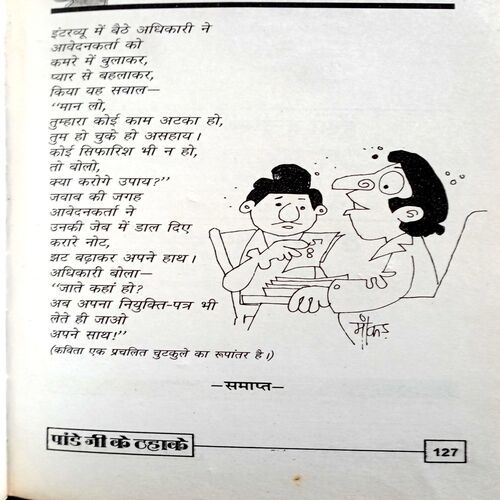 इंटरव्यू में बैठे अधिकारी ने
आवेदनकर्ता को
कमरे में बुलाकर,
प्यार से बहलाकर,
किया यह सवाल—
“मान लो,
तुम्हारा कोई काम अटका हो,
तुम हो चुके हो असहाय।
कोई सिफारिश भी न हो,
तो बोलो,
क्या करोगे उपाय?”
जवाब की जगह
आवेदनकर्ता ने
उनकी जेब में डाल दिए
करारे नोट,
झट बढ़ाकर अपने हाथ।
अधिकारी बोला—
“जाते कहां हो?
अब अपना नियुक्ति-पत्र भी
लेते ही जाओ
अपने साथ!”
(कविता एक प्रचलित चुटकुले का रूपांतर है।)
—समाप्त—
पांडे जी के ठहाके
127